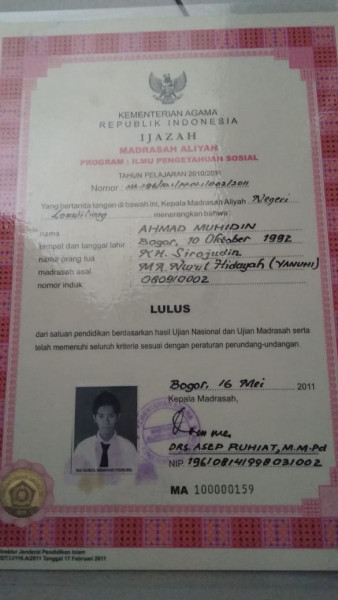 KEMENTERIAN AGAMA
REPUBLIK INDONESIA
IJAZAH
MADRASAH ALIYAH
PROGRAM : ILMU PENGETAHUAN SOSIAL
TAHUN PELAJARAN 2010/2011
Nomor :
Yang bertanda tangan di bawah ini, Kepala Madrasah Aliyah Negeri
menerangkan bahwa:
nama AHMAD MUHIDIN
tempat dan tanggal lahir Bogor, 10 Oktober 1992
nama orang tua KH. Sirojudin
madrasah asal MA. Nurul Hidayah (YANUHI)
nomor induk 060910002
LULUS
dari satuan pendidikan berdasarkan hasil Ujian Nasional dan Ujian Madrasah serta
telah memenuhi seluruh kriteria sesuai dengan peraturan perundang-undangan.
Bogor, 16 Mei 2011
Kepala Madrasah,
DRS. ASEP RUHIAT, M.M.Pd
NIP. 196108141998031002
MA 100000159
Direktur Jenderal Pendidikan Islam
Tanggal 17 Februari 2011